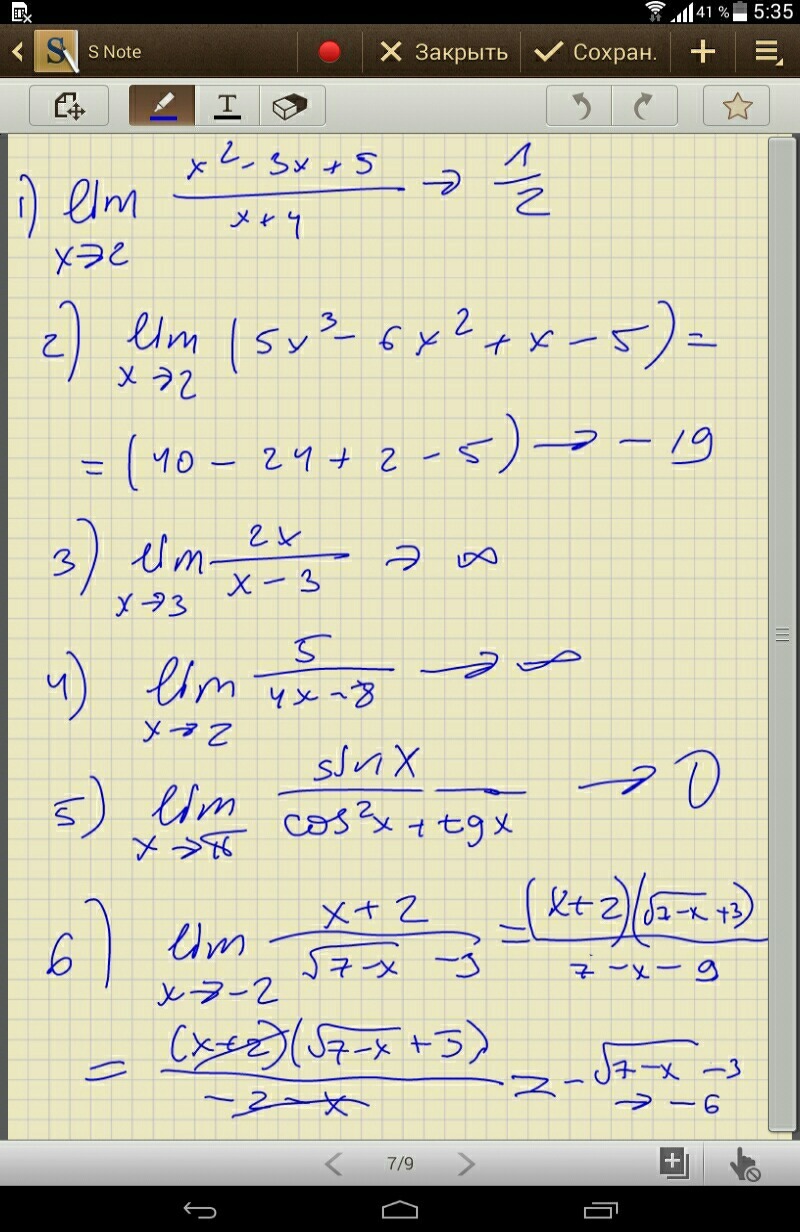 41 % 5:35
S Note Закрыть Сохран.
T
1) lim x→2 (x² - 3x + 5)/(x + 4) → 1/2
2) lim x→2 (5x³ - 6x² + x - 5) =
= (40 - 24 + 2 - 5) → - 19
3) lim x→3 2x/(x - 3) → ∞
4) lim x→2 5/(4x - 8) → ∞
5) lim x→π sin x/(cos²x + tg x) → 0
6) lim x→-2 (x + 2)/(√(7-x) - 3) = (x+2)(√(7-x) + 3)/(7 - x - 9)
= (x+2)(√(7-x) + 3)/(-2 - x) = -√(7-x) - 3 → - 6
7/9